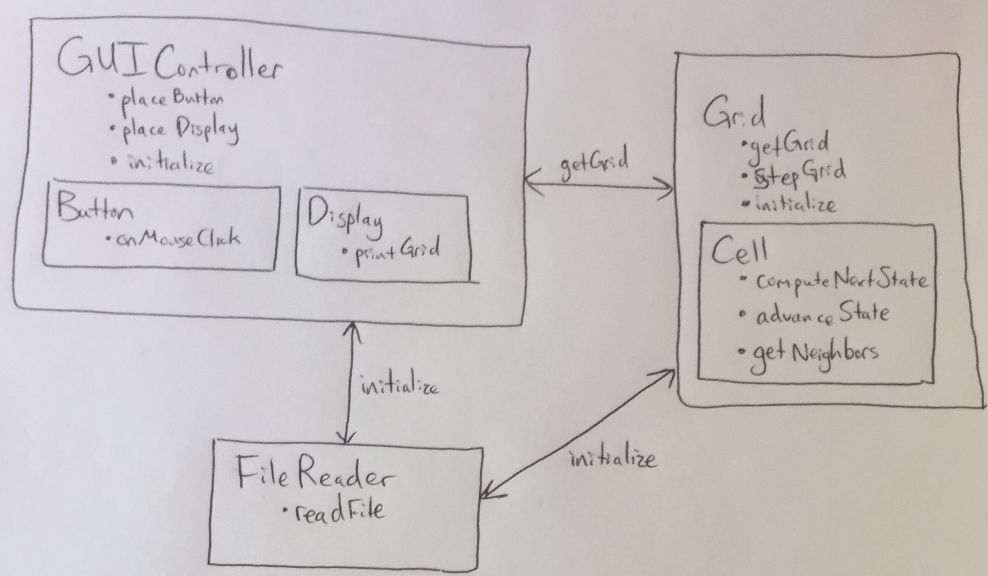 GUI Controller
• place Button
• place Display
• initialize
Button
• onMouseClick
Display
• printGrid
getGrid
Grid
• getGrid
• stepGrid
• initialize
Cell
• computeNextState
• advanceState
• getNeighbors
initialize
initialize
FileReader
• readFile